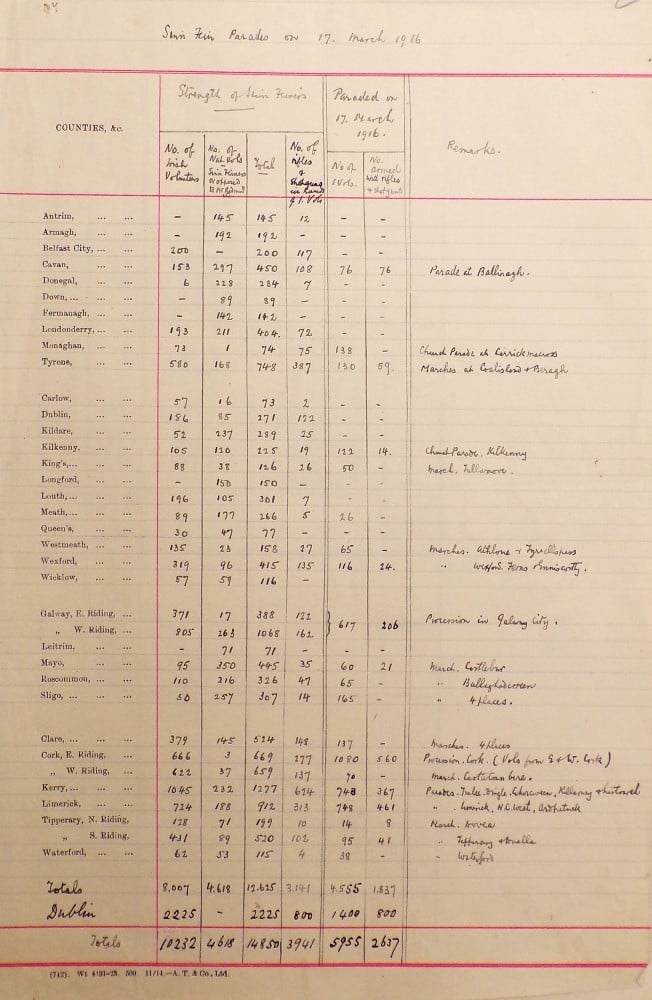 Sinn Fein Parades on 17. March 1916
COUNTIES, &c.
Strength of Sinn Feiners
Paraded on 17. March 1916.
Remarks.
No. of Irish Volunteers
No. of Nat. Vols
Total
No. of rifles & Shotguns in hands of I. Vols
No of I Vols.
No. armed with rifles & shotguns
Antrim, ... ... - 145 145 12 - -
Armagh, ... ... - 192 192 - - -
Belfast City, ... ... 200 - 200 117 - -
Cavan, ... ... 153 297 450 108 76 76 Parade at Ballinagh.
Donegal, ... ... 6 228 234 7 - -
Down, ... ... - 89 89 - - -
Fermanagh, ... ... - 142 142 - - -
Londonderry, ... ... 193 211 404. 72 - -
Monaghan, ... ... 73 1 74 75 138 - Church Parade at Carrickmacross
Tyrone, ... ... 580 168 748 387 130 59. Marches at Coalisland & Beragh
Carlow, ... ... 57 16 73 2 - -
Dublin, ... ... 186 85 271 122 - -
Kildare, ... ... 52 237 289 25 - -
Kilkenny, ... ... 105 120 225 19 122 14. Church Parade, Kilkenny
King's, ... ... 88 38 126 26 50 - March. Tullamore.
Longford, ... ... - 150 150 - - -
Louth, ... ... 196 105 301 7 - -
Meath, ... ... 89 177 266 5 26 -
Queen's, ... ... 30 47 77 - - -
Westmeath, ... ... 135 23 158 27 65 - Marches. Athlone & Tyrrellspass
Wexford, ... ... 319 96 415 135 116 24. " Wexford. Ferns & Enniscorthy.
Wicklow, ... ... 57 59 116 -
Galway, E. Riding, ... 371 17 388 122
" W. Riding, ... 805 263 1068 162 } 617 206 Procession in Galway City.
Leitrim, ... ... - 71 71 - - -
Mayo, ... ... 95 350 445 35 60 21 March. Castlebar
Roscommon, ... ... 110 216 326 47 65 - " Ballaghadereen
Sligo, ... ... 50 257 307 14 165 - " 4 places.
Clare, ... ... 379 145 524 148 137 - Marches. 4 places
Cork, E. Riding, ... 666 3 669 277 1080 560 Procession. Cork. (Vols from E & W. Cork)
" W. Riding, ... 622 37 659 137 70 - March. Castletownbere.
Kerry, ... ... 1045 232 1277 624 748 367 Parades. Tralee. Dingle. Cahirciveen, Killarney & Listowel
Limerick, ... ... 724 188 912 313 748 461 " Limerick, N.C. West, Ardpatrick
Tipperary, N. Riding, 128 71 199 10 14 8 March.
" S. Riding, 431 89 520 102 95 41 " Tipperary &
Waterford, ... ... 62 53 115 4 38 - " Waterford
Totals 8.007 4.618 12.625 3.141 4.555 1.837
Dublin 2225 - 2225 800 1400 800
Totals 10232 4618 14850 3941 5955 2637
(742). Wt 4191-25. 500 11/14.—A. T. & Co., Ltd.